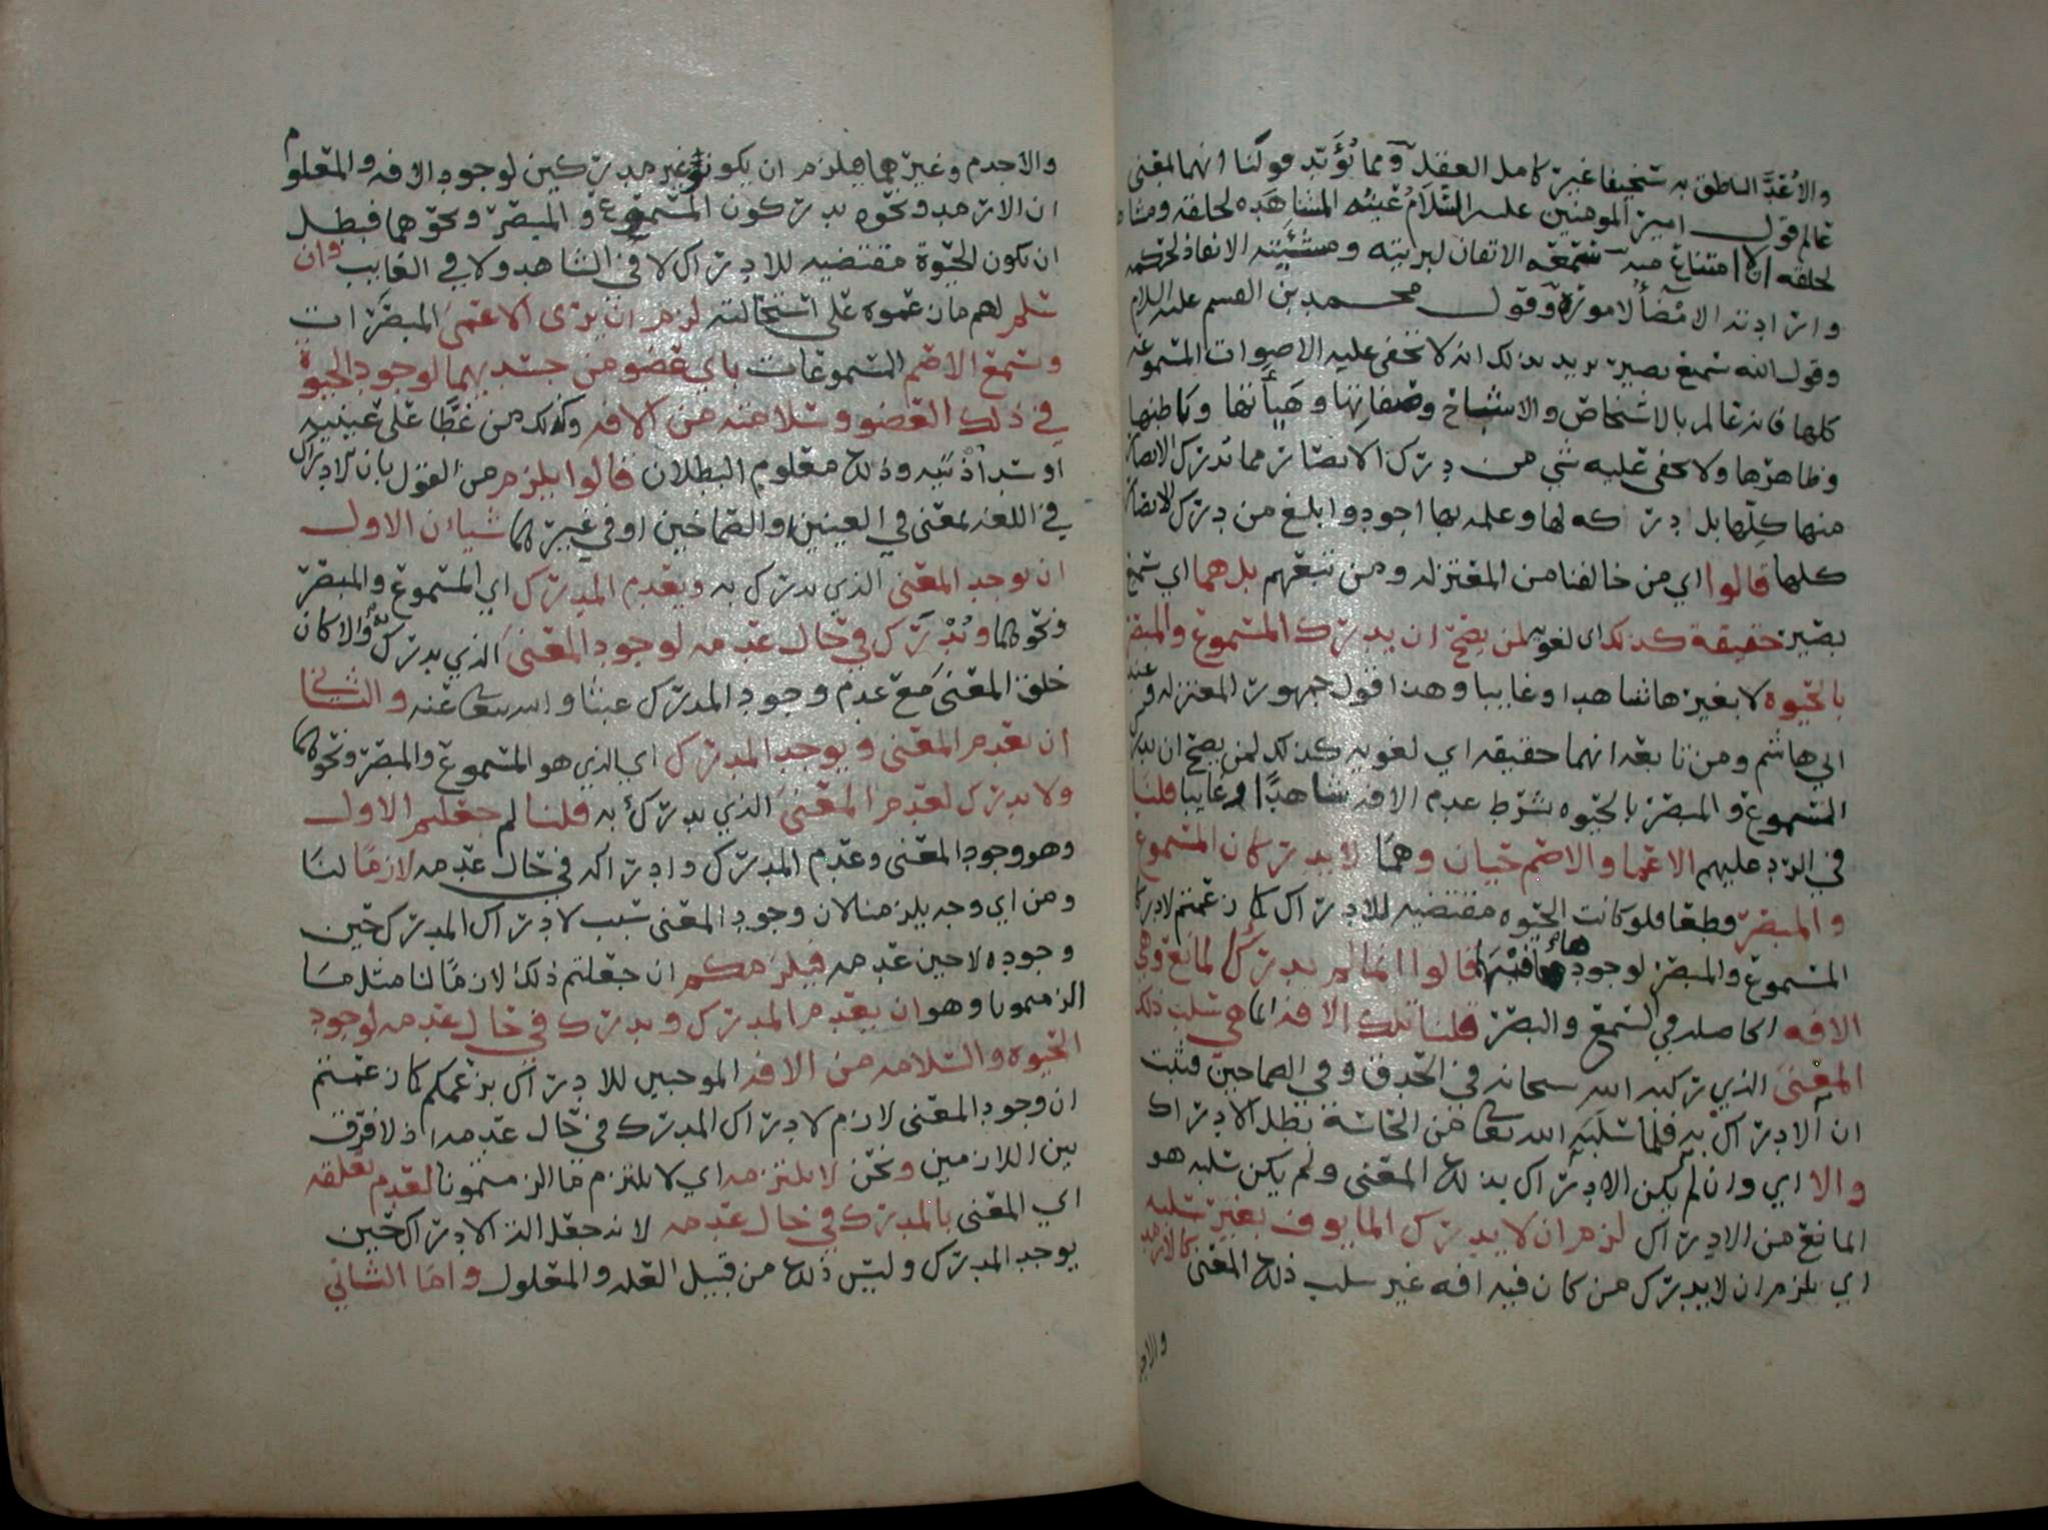 والا عُدَّ الناطق به سخيفا غير كامل العقل ومما يُؤَيّد قولنا انهما بمعنى
عالم قول امير المومنين عليه السّلام عَيْنُه المشاهَده لخلقه ومشاه
لخلقه ان لا امتناع منه سمعه الاتقان لبريته ومشيئته الانفاذ لحكمه
وارادته الامضأ لاموره وقول محمد بن القسم عليه السلام
وقوله انه سميع بصير يريد بذلك انه لا تخفى عليه الاصوات المسموعه
كلها فانه عالم بالاشخاص والاشباح وصفاتها وهيأتها وباطنها
وظاهرها ولا يخفى عليه شي من درك الابصار مما تدركه الابصار
منها كلّها بل ادراكه لها وعلمه بها اجود وابلغ من درك الابصار
كلها قالوا اي من خالفنا من المعتزله ومن تبعهم بل هما اي سميع
بصير حقيقة كذلك اى لغويه لمن يصحّ ان يدرك المسموع والمبصر
بالحيوه لا بغيرها شاهدا او غايبا وهذا قول جمهور المعتزله وعند
ابي هاشم ومن تابعه انهما حقيقه اي لغويه كذلك لمن يصح ان يدرك
المسموع والمبصر بالحيوه بشرط عدم الافه شاهدًا او غايبا قلنا
في الرد عليهم الاعما والاصم حيان وهما لا يدركان المسموع
والمبصر قطعا فلو كانت الحيوه مقتضيه للادراك كما زعمتم لادركا
المسموع والمبصر لوجودها فيهما قالوا انما لم يدركا لمانع وهي
الافه الحاصله في السمع والبصر قلنا تلك الافه انما هي سلب ذلك
المعنى الذي ركبه الله سبحانه في الحدق وفي الصماخين فثبت
ان الادراك به فلما سلبه الله تعالى من الحاسة بطل الادراك
والا اي وان لم يكن الادراك بذلك المعنى ولم يكن سلبه هو
المانع من الادراك لزم ان لا يدرك المايوف بغير سلبه
اي يلزم ان لا يدرك من كان فيه افه غير سلب ذلك المعنى كالارمد
والاجذم
والاجدم وغيرهما فيلزم ان يكونوا غير مدركين لوجود الافه والمعلوم
ان الارمد ونحوه يدركون المسموع والمبصر ونحوهما فبطل
ان تكون الحيوة مقتضيه للادراك لا في الشاهد ولا في الغايب وان
سلم لهم ما زعموه على استحالته لزم ان يرى الاعمى المبصرات
وسمع الاصم المسموعات باي عضو من جسديهما لوجود الحيوة
في ذلك العضو وسلامته من الافه وكذلك من غطّا على عينيه
او سد اذنيه وذلك معلوم البطلان قالوا يلزم من القول بان الادراك
في اللغه بمعنى في العينين والصماخين او في غيرهما شيان الاول
ان يوجد المعنى الذي يدرك به ويعدم المدرك اي المسموع والمبصر
ونحوهما ويُدرَك في حال عدمه لوجود المعنى الذي يدرك به والا كان
خلق المعنى مع عدم وجود المدرك عبثا والله يتعالى عنه والشاني
ان يعدم المعنى ويوجد المدرك اي الذي هو المسموع والمبصر ونحوهما
ولا يدرك لعدم المعنى الذي يدرك به قلنا لم جعلتم الاول
وهو وجود المعنى وعدم المدرك وادراكه في حال عدمه لازمًا لنا
ومن اي وجه يلزمنا لان وجود المعنى سبب لادراك المدرك حين
وجوده لا حين عدمه فيلزمكم ان جعلتم ذلك لازمًا لنا مثل ما
الزمتمونا وهو ان يعدم المدرك ويدرك في حال عدمه لوجود
الحيوه والسلامه من الافه الموجبين للادراك بزعمكم كما زعمتم
ان وجود المعنى لازم لادراك المدرك في حال عدمه اذ لا فرق
بين اللازمين ونحن لا نلتزمه اي لا نلتزم ما الزمتمونا لعدم تعلقه
اي المعنى بالمدرك في حال عدمه لانه جعل الة الادراك حين
يوجد المدرك وليس ذلك من قبيل العله والمعلول واما الثاني